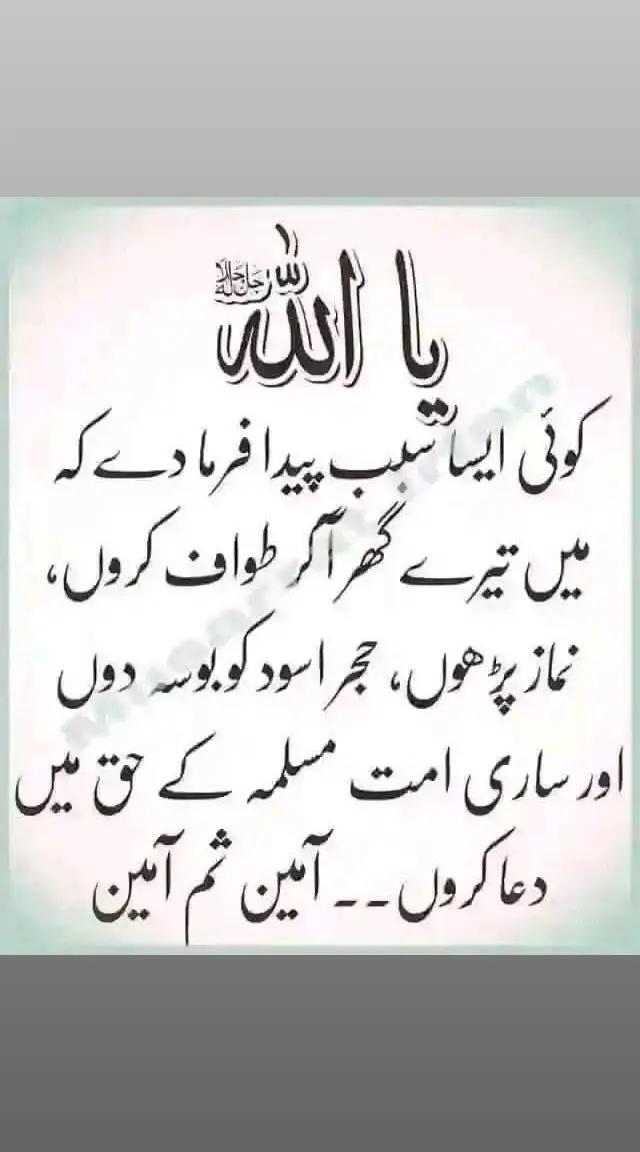 یا اللہ جل جلالہ
کوئی ایسا سبب پیدا فرما دے کہ
میں تیرے گھر آ کر طواف کروں،
نماز پڑھوں، حجر اسود کو بوسہ دوں
اور ساری امت مسلمہ کے حق میں
دعا کروں۔۔ آمین ثم آمین